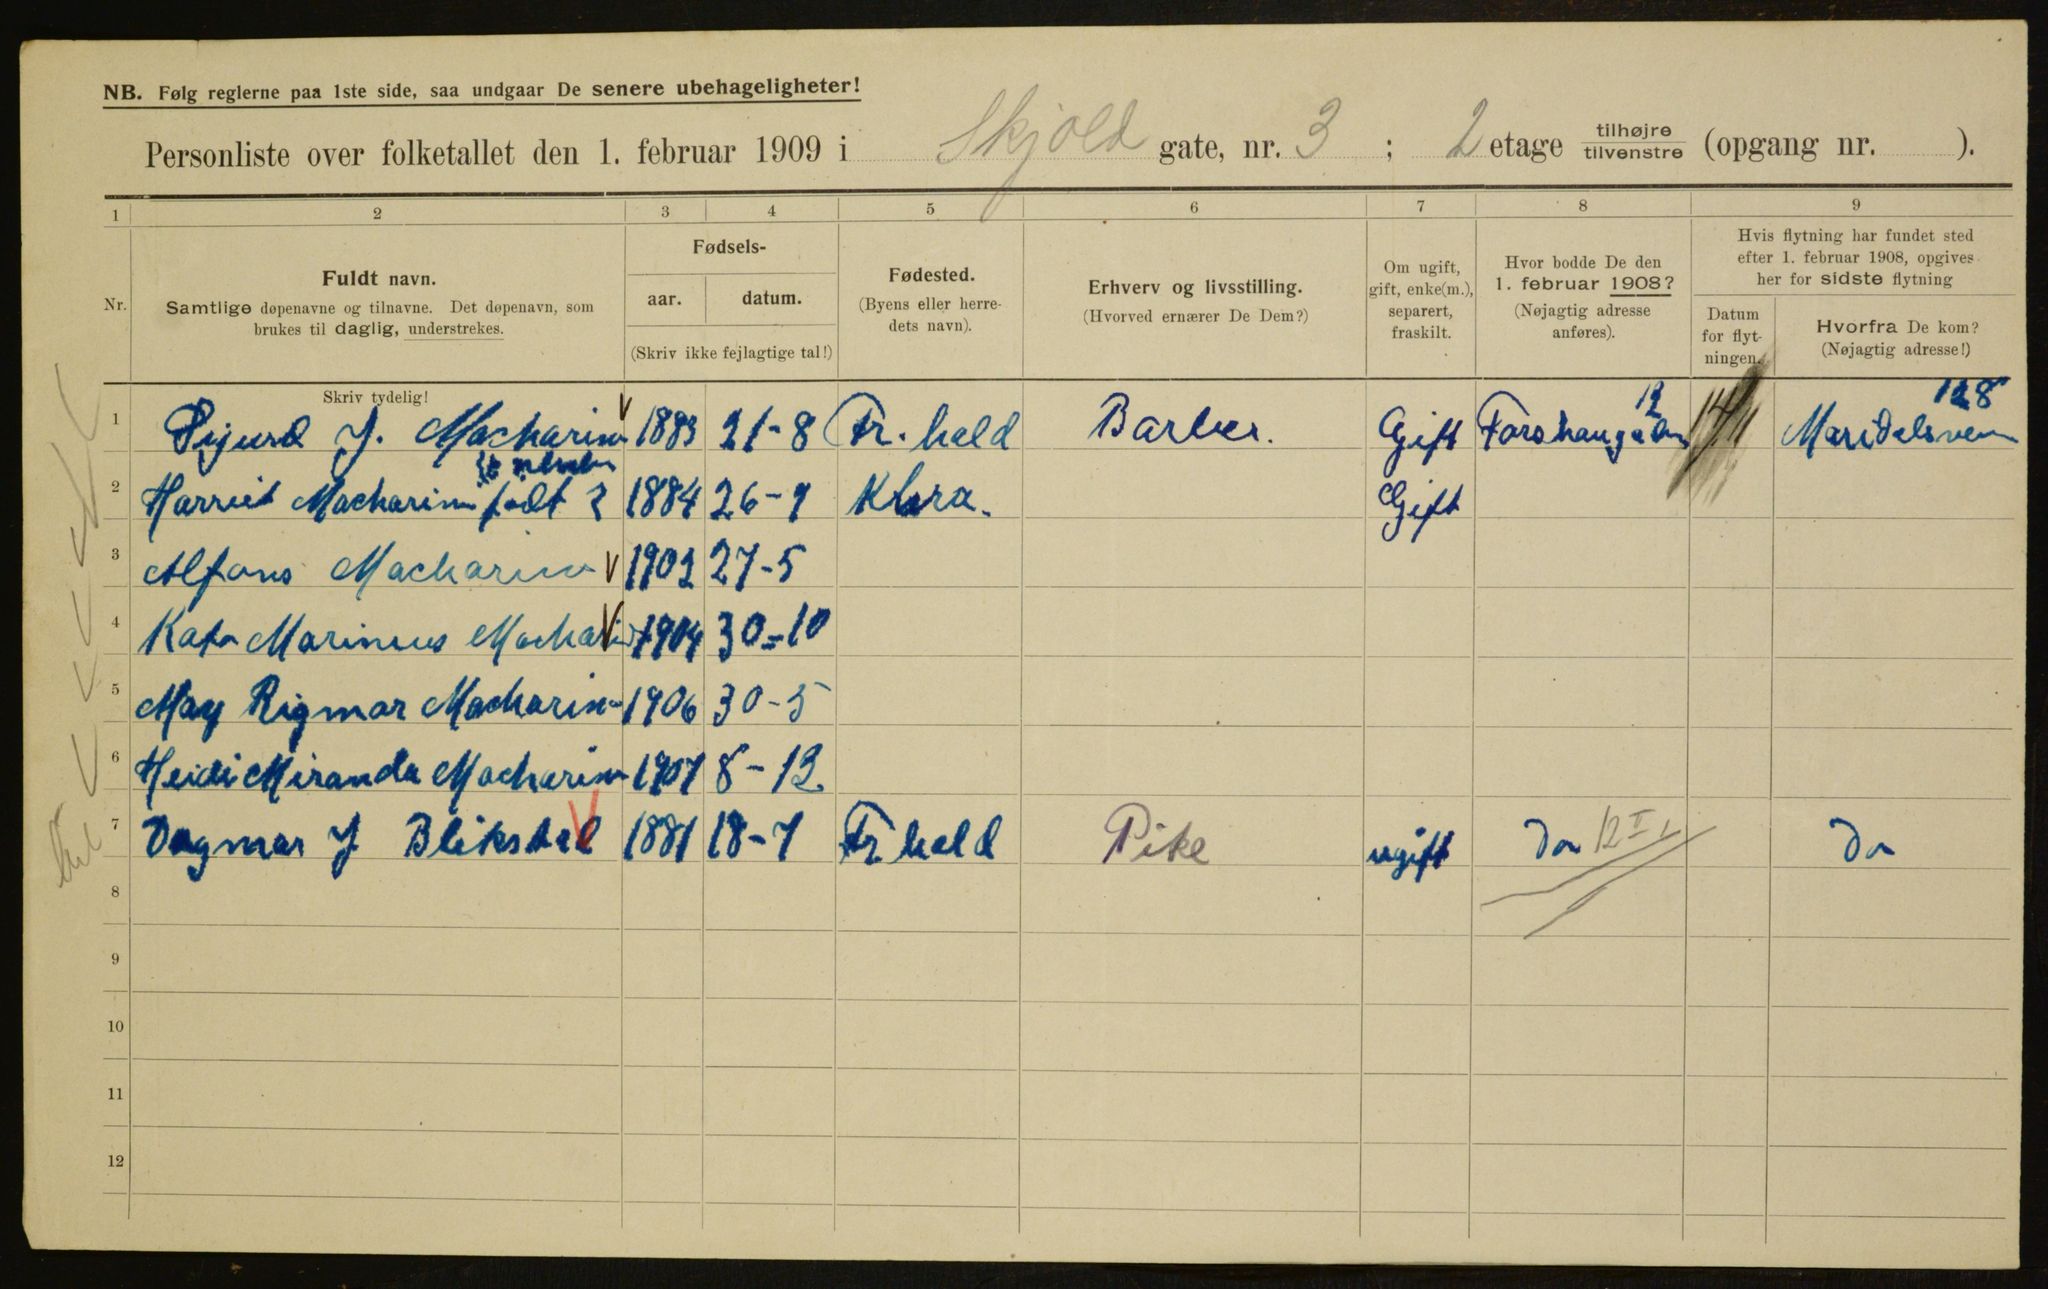 NB. Følg reglerne paa 1ste side, saa undgaar De senere ubehageligheter!
Personliste over folketallet den 1. februar 1909 i Skjold gate, nr. 3 ; 2 etage tilhøjre/tilvenstre (opgang nr. ).
1 2 3 4 5 6 7 8 9
Nr.
Fuldt navn.
Samtlige døpenavne og tilnavne. Det døpenavn, som
brukes til daglig, understrekes.
Skriv tydelig!
Fødsels-
aar. datum.
(Skriv ikke fejlagtige tal!)
Fødested.
(Byens eller herre-
dets navn).
Erhverv og livsstilling.
(Hvorved ernærer De Dem?)
Om ugift,
gift, enke(m.),
separert,
fraskilt.
Hvor bodde De den
1. februar 1908?
(Nøjagtig adresse
anføres).
Hvis flytning har fundet sted
efter 1. februar 1908, opgives
her for sidste flytning
Datum
for flyt-
ningen.
Hvorfra De kom?
(Nøjagtig adresse!)
1 Sigurd J. Macharin 1883 21-8 Fr. hald Barber. Gift 12 128 Maridalsveien
2 Harriet Macharin født 1884 26-9 Kbra. Gift
3 Alfons Macharin 1902 27-5
4 Marinius Macharin 1904 30-10
5 May Rigmor Macharin 1906 30-5
6 Heidi Miranda Macharin 1907 8-12
7 Dagmar J Blikstad 1881 18-7 Fr. hald Pike ugift Do 12 Do
8
9
10
11
12